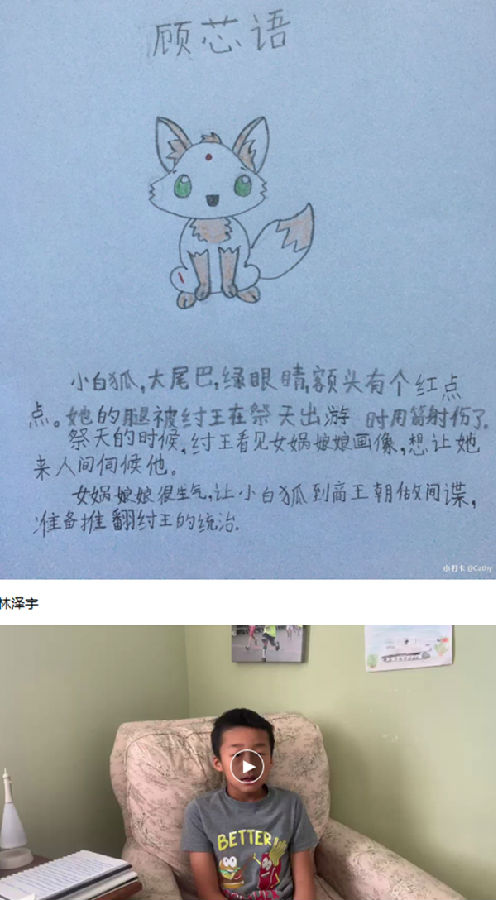 顾芯语
小白狐,大尾巴,绿眼睛,额头有个红点
点。她的腿被纣王在祭天出游时用箭射伤了.
祭天的时候,纣王看见女娲娘娘画像,想让她
来人间伺候他。
女娲娘娘很生气,让小白狐到商王朝做间谍,
准备推翻纣王的统治.
小打卡@Cathy
林泽宇
BETTER